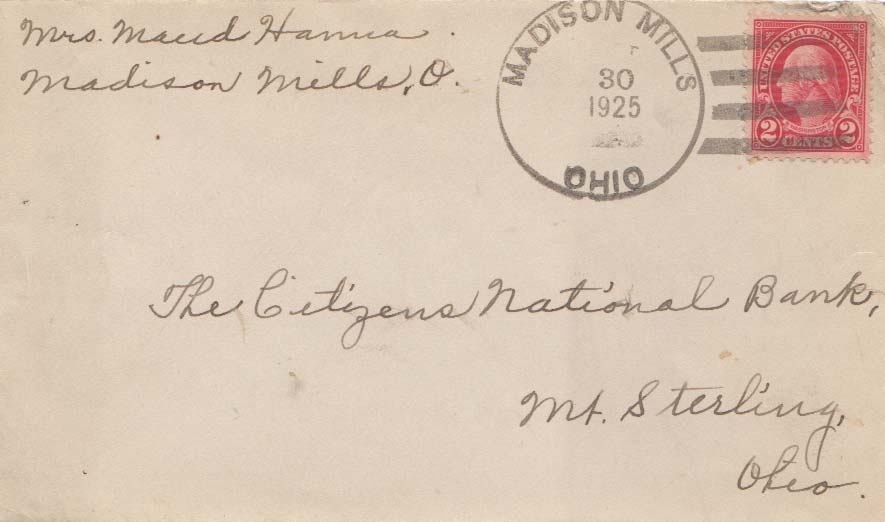 Mrs. Maud Hanna.
Madison Mills, O.
MADISON MILLS
30
1925
OHIO
UNITED STATES POSTAGE
WASHINGTON
2 CENTS 2
The Citizens National Bank,
Mt. Sterling,
Ohio.